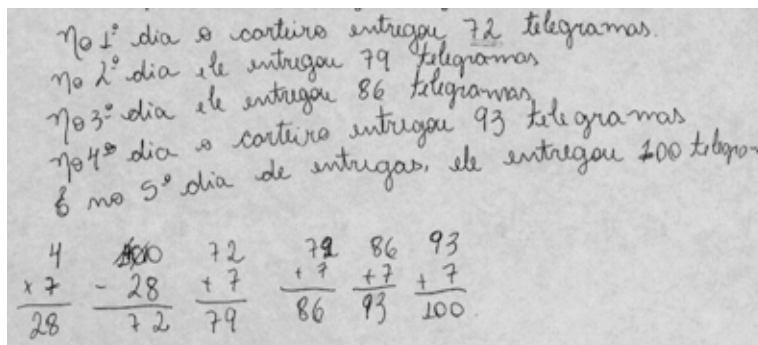 No 1º dia o carteiro entregou 72 telegramas.
no 2º dia ele entregou 79 telegramas
No 3º dia ele entregou 86 telegramas
No 4º dia o carteiro entregou 93 telegramas
E no 5º dia de entregas, ele entregou 100 telegra
4 100 72 79 86 93
x 7 - 28 + 7 + 7 + 7 + 7
28 72 79 86 93 100